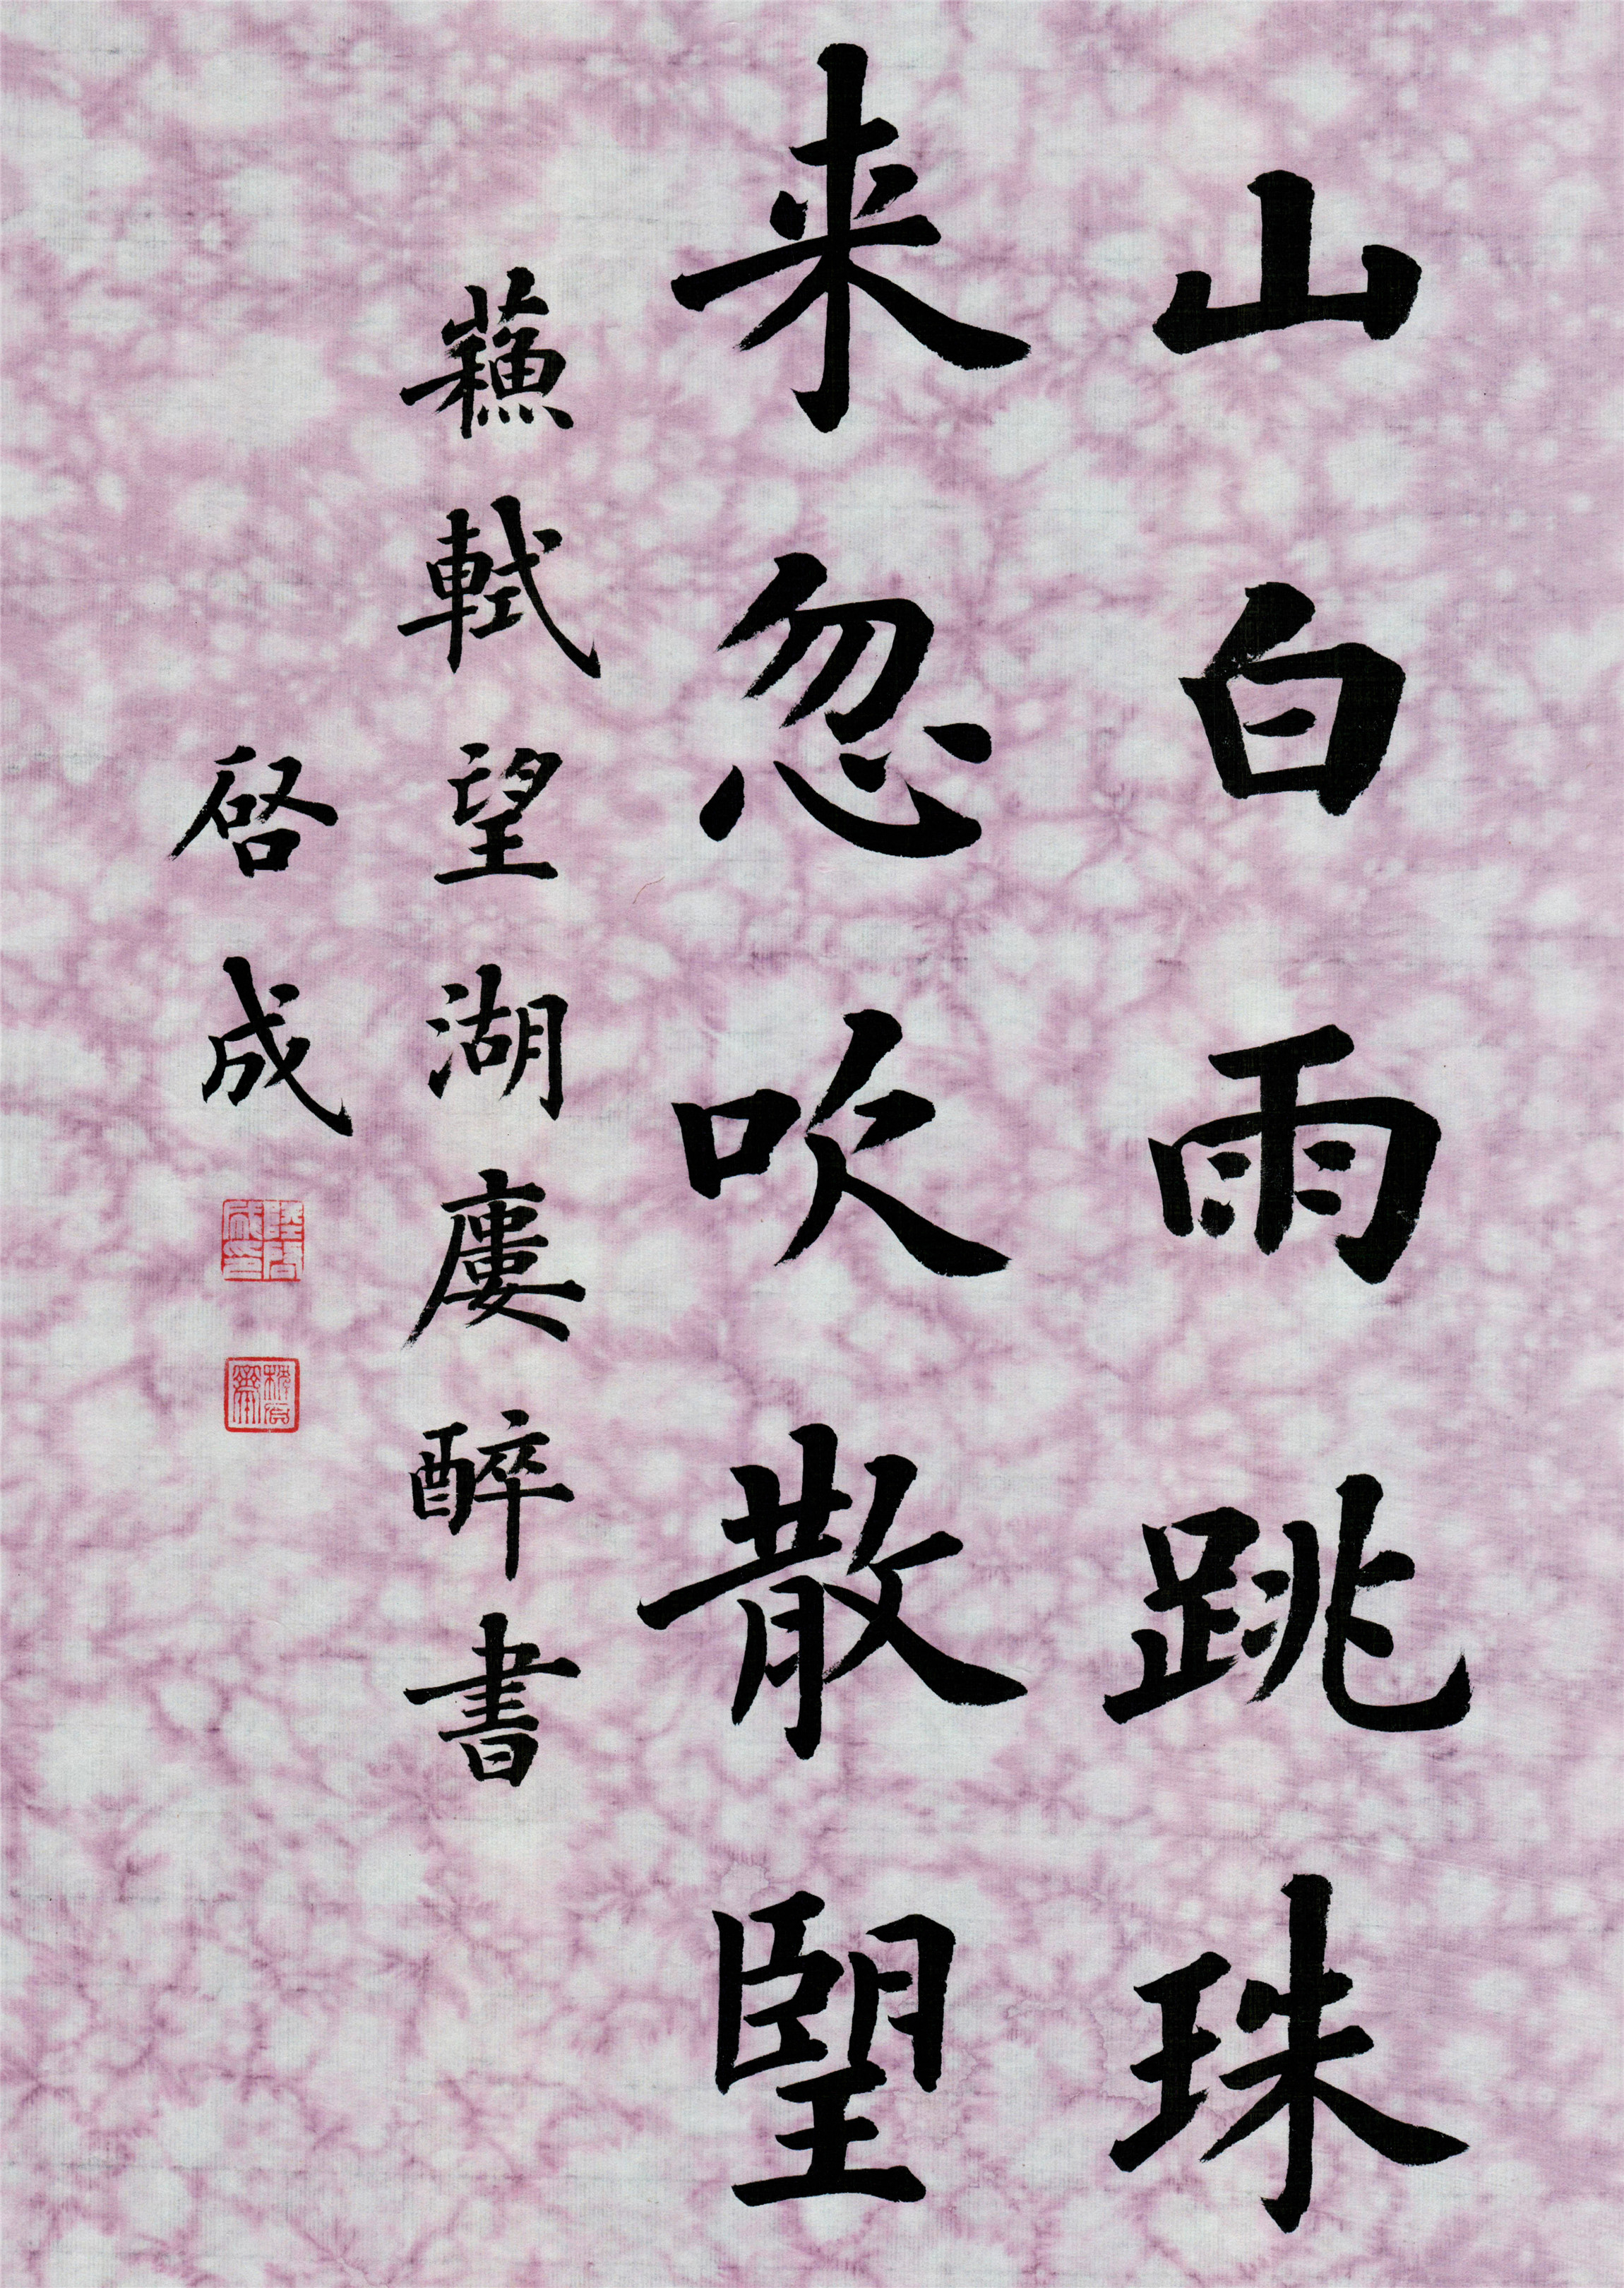 山白雨跳珠
来忽吹散朢
蘓軾望湖廔醉書
啓成